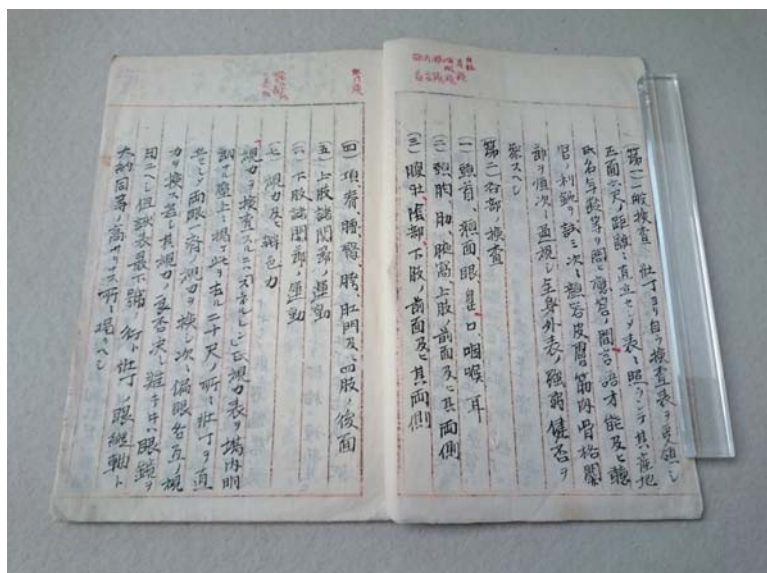 第一、一般検査 壮丁ヨリ自ラ検査表ヲ受領シ
正面六尺ノ距離ニ直立セシメ表ニ照ラシテ其産地
氏名年齢等ヲ問ヒ應答ノ間言語才能及ヒ聴
官ノ利鈍ヲ試ミ次ニ顔容皮膚筋肉骨格関
節ヲ順次ニ通視シ全身外表ノ強弱健否ヲ
察スヘシ
第二、各部ノ検査
(一) 頭首、顔面、眼、鼻、口、咽喉、耳
(二) 頸、胸、肋、腋窩、上肢ノ前面及ヒ其両側
(三) 腹壮、陰部、下肢ノ前面及ヒ其両側
(四) 項、脊、腰、臀、胯、肛門及、四肢ノ後面
(五) 上肢諸関節ノ運動
(六) 下肢諸関節ノ運動
(七) 視力及ヒ辨色力
視力ヲ検査スルニハスネルレン氏視力表ヲ場内明
ノ壁上ニ掲ケ此ヲ去ル二十尺ノ所ニ壮丁ヲ直
立セシメ両眼一斉視力ヲ検シ次ニ偏眼各互ノ視
力ヲ検ス若シ其視力ノ良否決シ難キ中ハ眼鏡ヲ
用ユヘシ但試表最下ノ 行ト壮丁ノ眼縦軸ト
大約同等ノ高サナル所ニ掲クヘシ